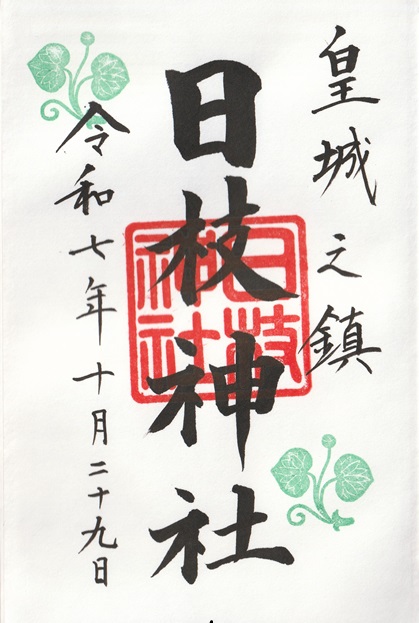 皇城之鎮
日枝神社
日枝神社
令和七年十月二十九日